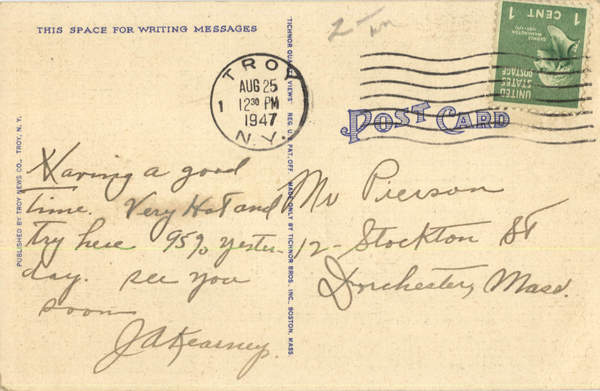 THIS SPACE FOR WRITING MESSAGES
TROY
AUG 25
12 30 PM
1947
N.Y.
1
2-
1 CENT 1
GEORGE WASHINGTON
UNITED
STATES
POSTAGE
POST CARD
PUBLISHED BY TROY NEWS CO., TROY, N. Y.
TICHNOR QUALITY VIEWS REG. U.S. PAT. OFF. MADE ONLY BY TICHNOR BROS. INC., BOSTON, MASS.
Having a good
time. Very Hot and
try here 95% yester-
day. see you
soon
JAKearney.
Mr Pierson
12- Stockton St
Dorchester, Mass.